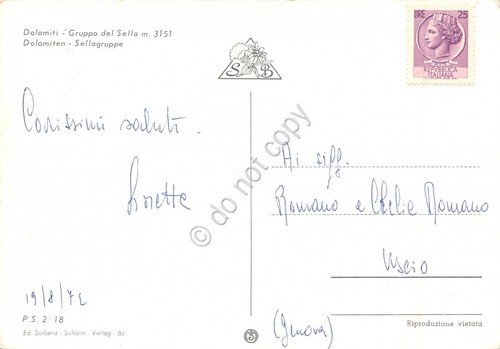 Dolomiti - Gruppo del Sella m. 3151
Dolomiten - Sellagruppe
S B
LIRE 25
REPVBBLICA
ITALIANA
Carissimi saluti.
Ai sigg.
Romano e Clelia Romano
Uscio
(Genova)
19/8/72
P.S. 2/18
Ed Sciliana - Schlern - Verlag - Bz
Riproduzione vietata
© do not copy